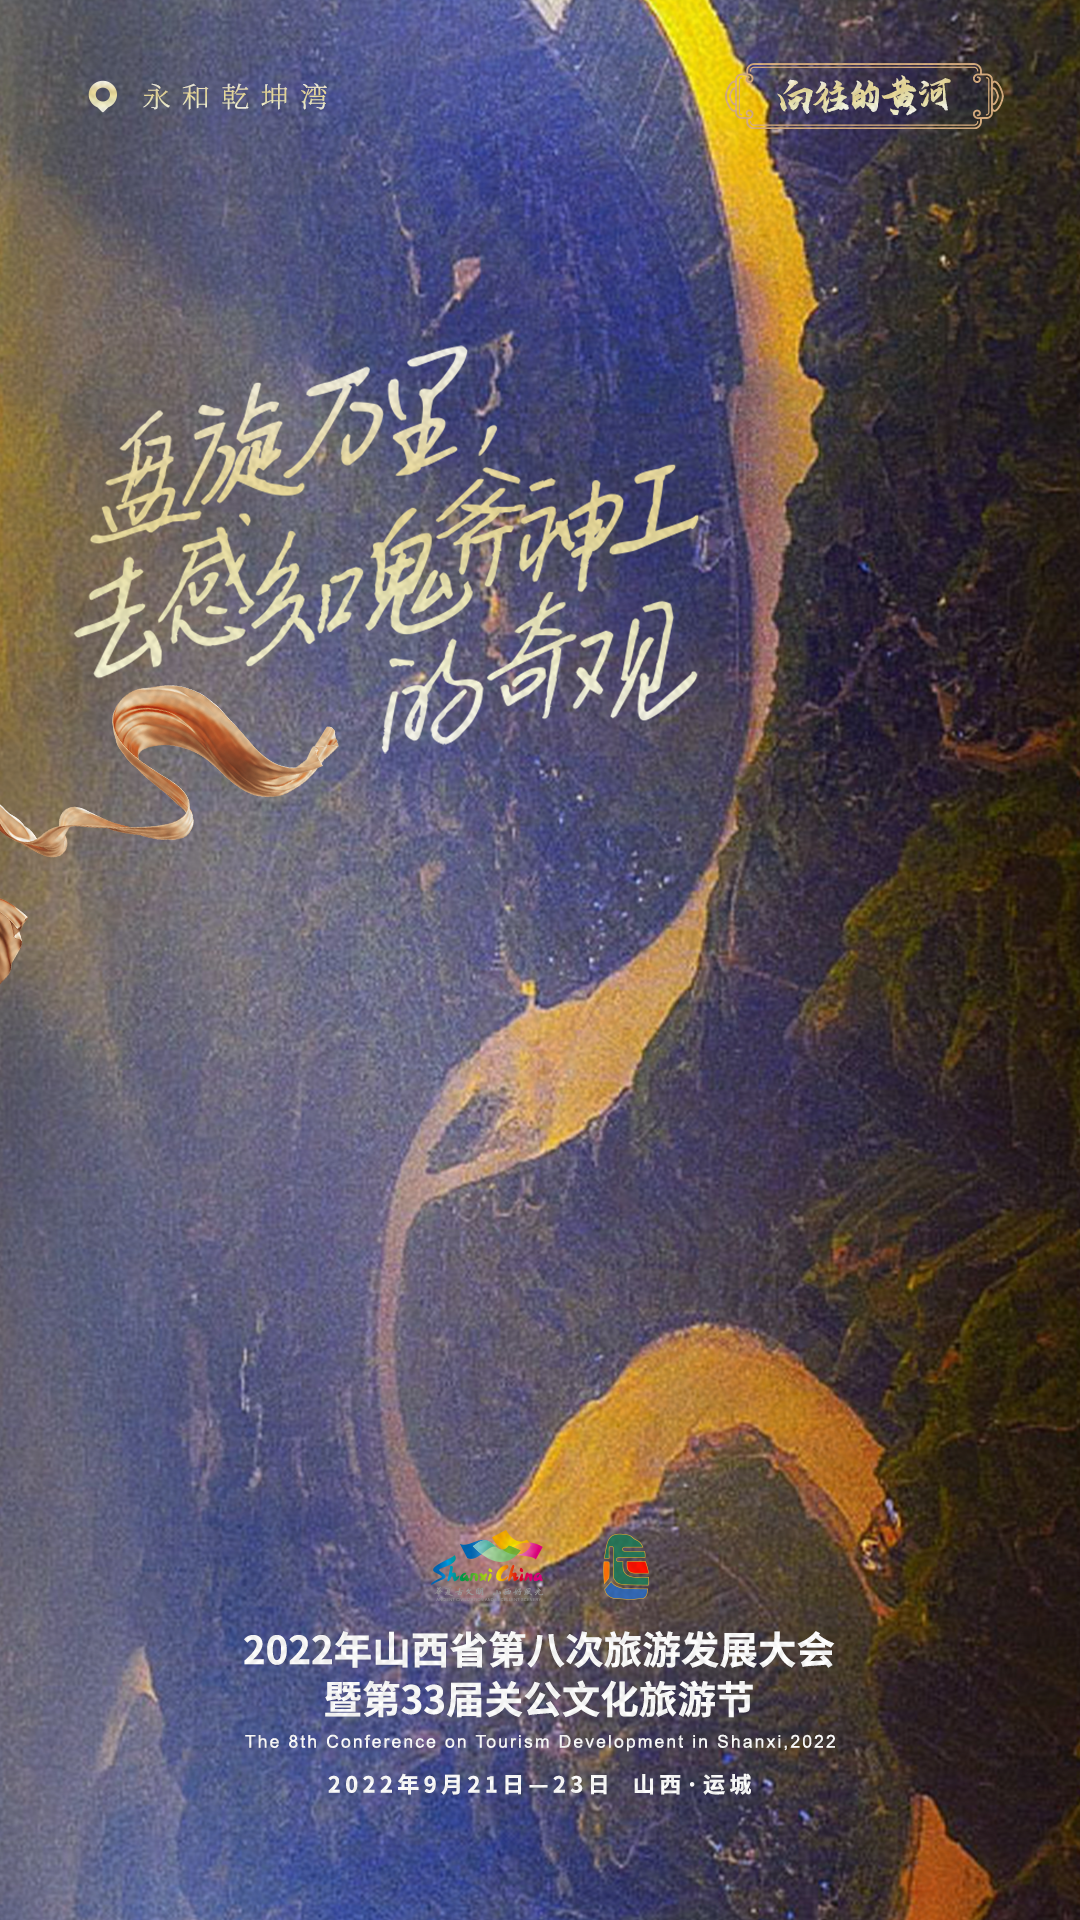 永和乾坤湾
向往的黄河
盘旋万里,
去感知鬼斧神工
的奇观
Shanxi China
2022年山西省第八次旅游发展大会
暨第33届关公文化旅游节
The 8th Conference on Tourism Development in Shanxi,2022
2022年9月21日—23日 山西·运城